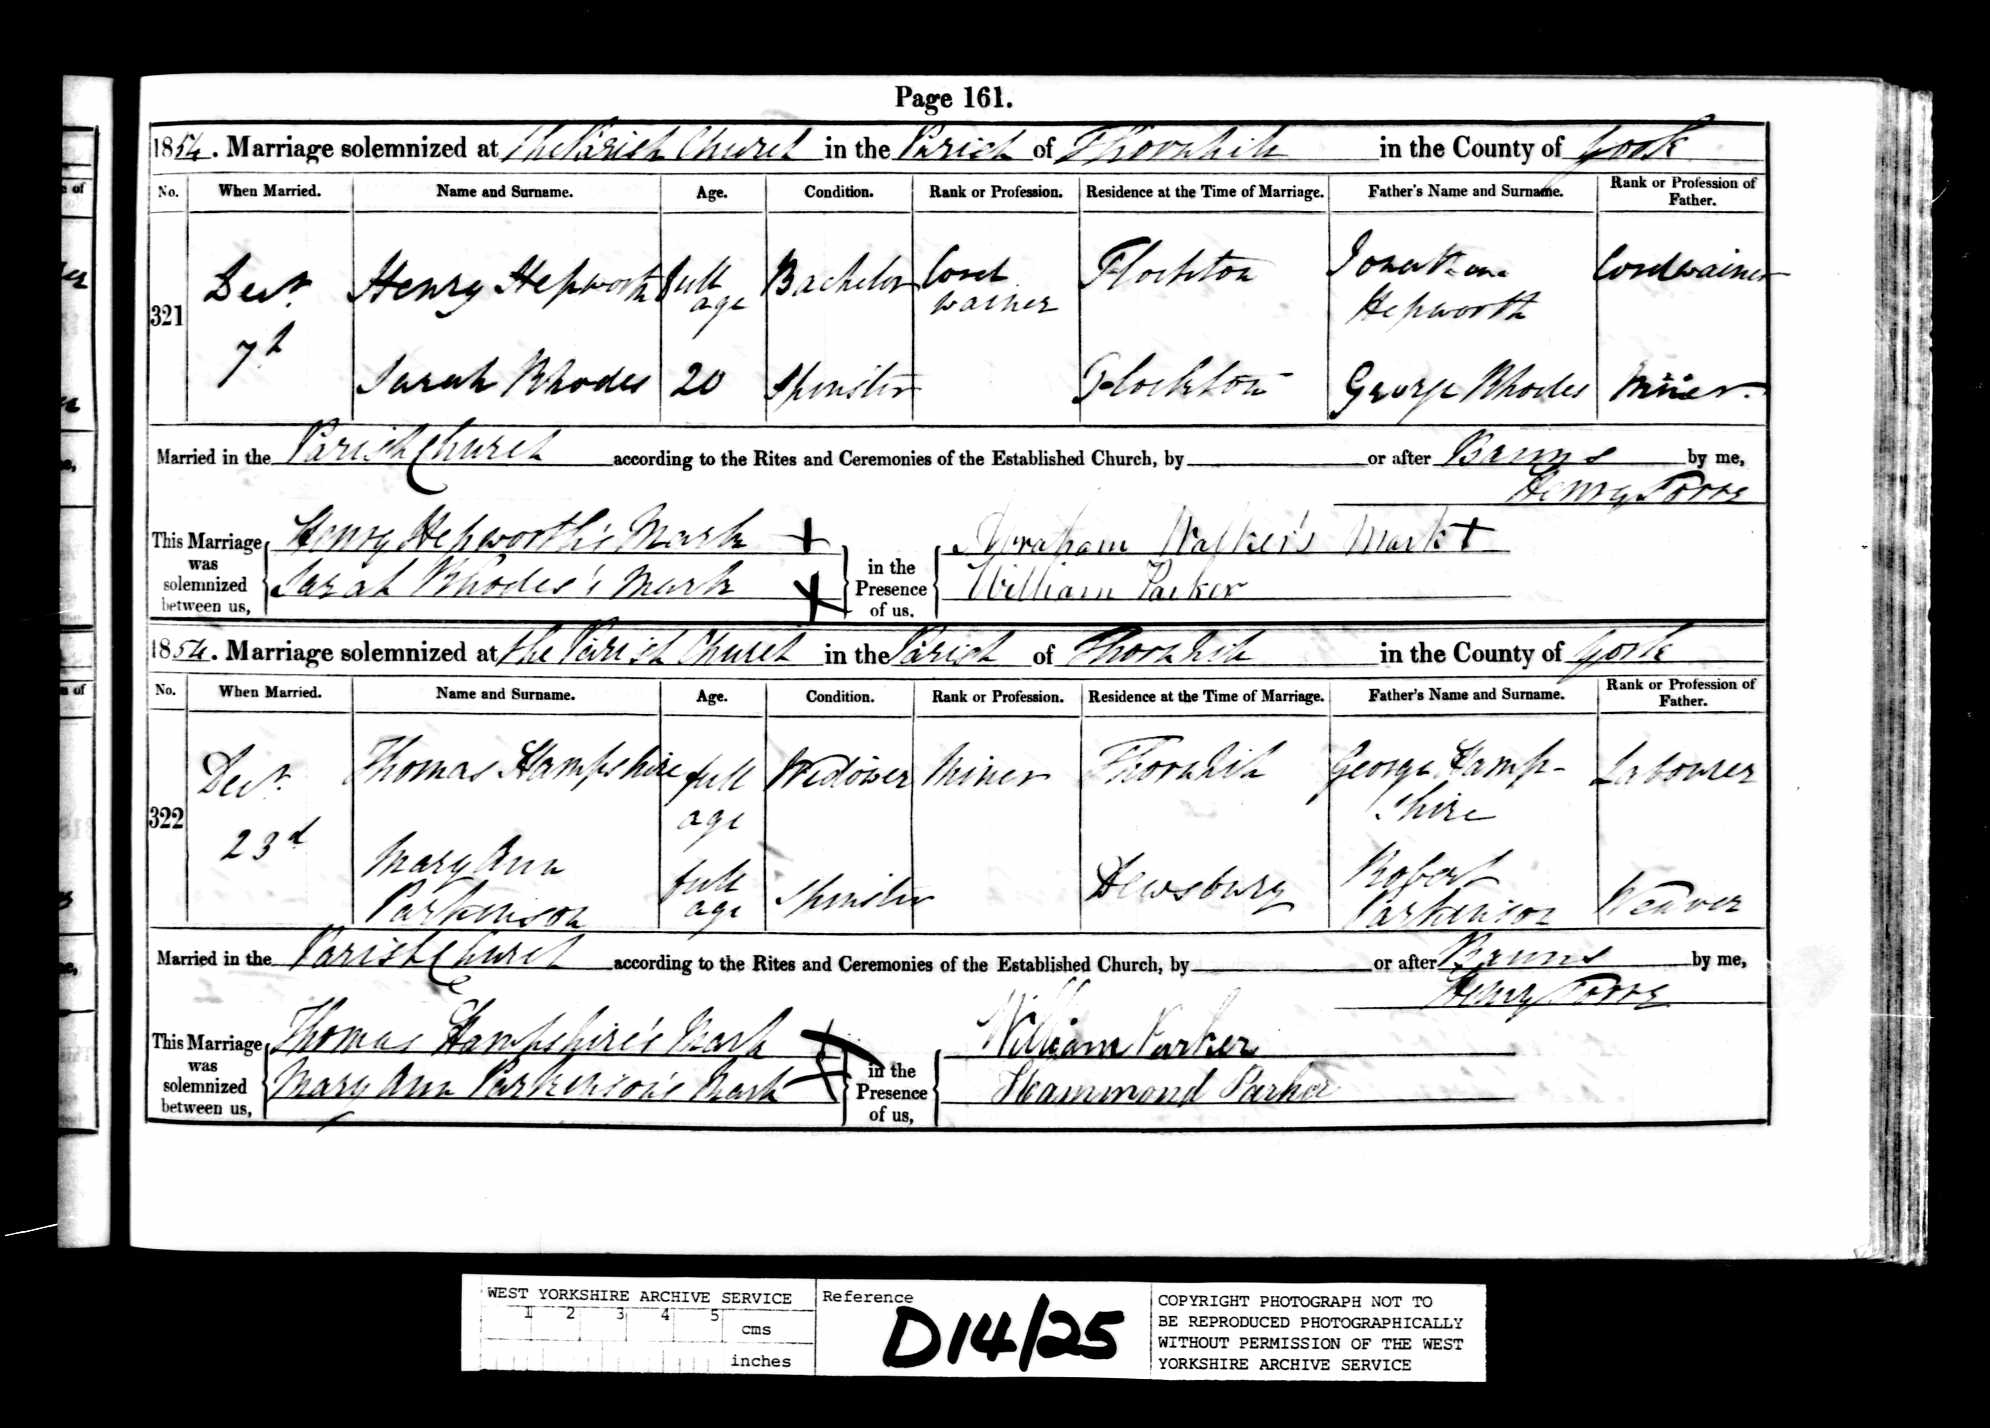 Page 161.
1854. Marriage solemnized at the Parish Church in the Parish of Thornhill in the County of York
No. When Married. Name and Surname. Age. Condition. Rank or Profession. Residence at the Time of Marriage. Father's Name and Surname. Rank or Profession of Father.
321 Decr. 7th Henry Hepworth full age Bachelor Cord wainer Flockton Jonathan Hepworth Cordwainer
Sarah Rhodes 20 Spinster Flockton George Rhodes Miner
Married in the Parish Church according to the Rites and Ceremonies of the Established Church, by or after Banns by me,
Henry Torre
This Marriage was solemnized between us, Henry Hepworth's Mark + in the Presence of us. Abraham Walker's Mark +
Sarah Rhodes's Mark X William Parker
1854. Marriage solemnized at the Parish Church in the Parish of Thornhill in the County of York
No. When Married. Name and Surname. Age. Condition. Rank or Profession. Residence at the Time of Marriage. Father's Name and Surname. Rank or Profession of Father.
322 Decr. 23d Thomas Hampshire full age Widower Miner Thornhill George Hamp-shire Labourer
Mary Ann Parkinson full age Spinster Dewsbury Robert Parkinson Weaver
Married in the Parish Church according to the Rites and Ceremonies of the Established Church, by or after Banns by me,
Henry Torre
This Marriage was solemnized between us, Thomas Hampshire's Mark + in the Presence of us, William Parker
Mary Ann Parkinson's Mark + Hammond Parker
WEST YORKSHIRE ARCHIVE SERVICE
1 2 3 4 5
cms
inches
Reference
D14/25
COPYRIGHT PHOTOGRAPH NOT TO
BE REPRODUCED PHOTOGRAPHICALLY
WITHOUT PERMISSION OF THE WEST
YORKSHIRE ARCHIVE SERVICE